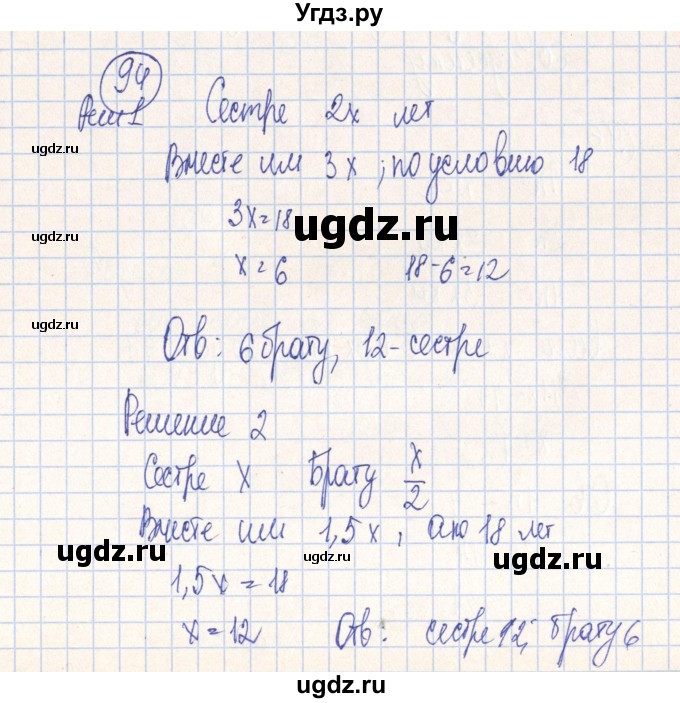 Угдз.ру
94
Реш1 Сестре 2x лет
ugdz.ru
Вместе им 3x; по условию 18
3x=18
ugdz.ru
ugdz.ru
x=6 18-6=12
ugdz.ru
Отв: 6 брату, 12-сестре
Решение 2
Сестре x Брату x/2
Вместе им 1,5x, а по 18 лет
ugdz.ru
ugdz.ru
ugdz.ru
1,5x=18
x=12 Отв: сестре 12; брату 6
ugdz.ru
ugdz.ru
ugdz.ru